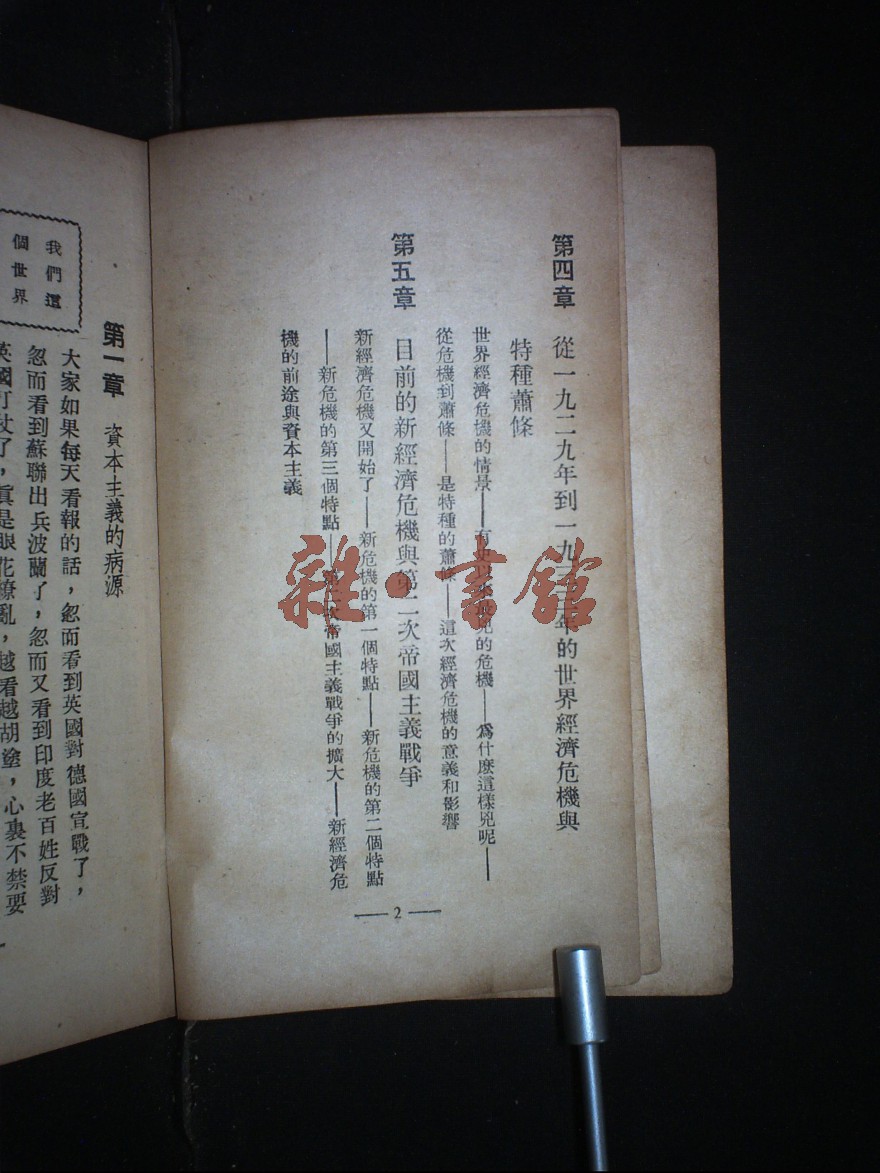 第四章 從一九二九年到一九三三年的世界經濟危機與
特種蕭條
世界經濟危機的情景——有史以來最兇的危機——爲什麽這樣兇呢——
從危機到蕭條——是特種的蕭條——這次經濟危機的意義和影響
第五章 目前的新經濟危機與第二次帝國主義戰爭
新經濟危機又開始了——新危機的第一個特點——新危機的第二個特點
——新危機的第三個特點——第二次帝國主義戰爭的擴大——新經濟危
機的前途與資本主義
—— 2 ——
雜·書館
第一章 資本主義的病源
大家如果每天看報的話，忽而看到英國對德國宣戰了，
忽而看到蘇聯出兵波蘭了，忽而又看到印度老百姓反對
英國打仗了，眞是眼花繚亂，越看越胡塗，心裏不禁要
我們這
個世界